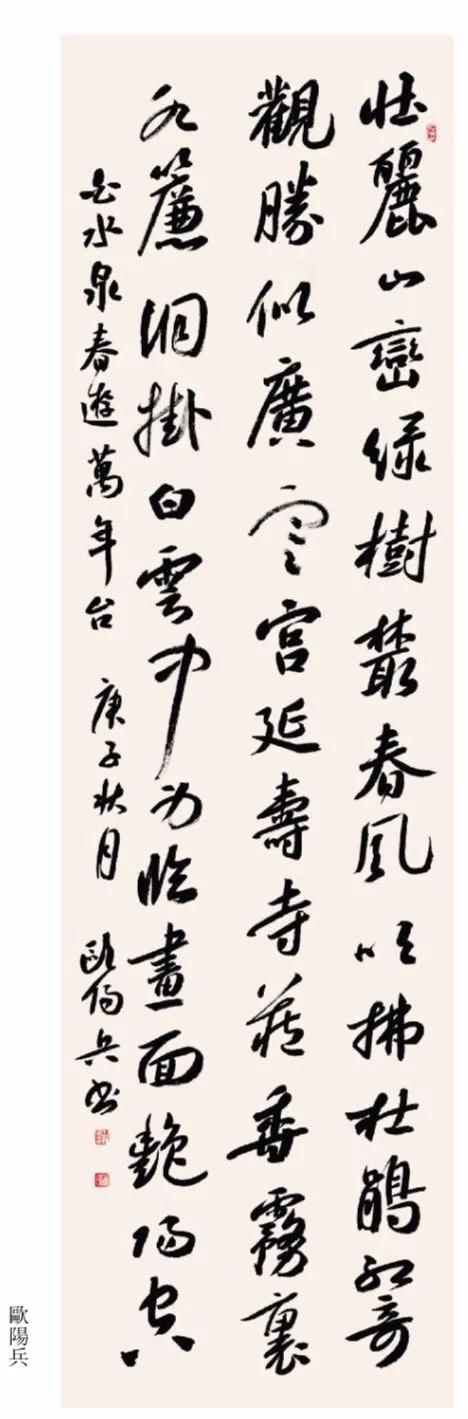 壯麗山巒綠樹叢春風吹拂杜鵑紅奇
觀勝似廣寒宮延壽寺藏香霧裏
水簾洞掛白雲中身臨畫面艷陽
水泉春遊萬年台 庚子秋月 歐陽兵書
歐陽兵